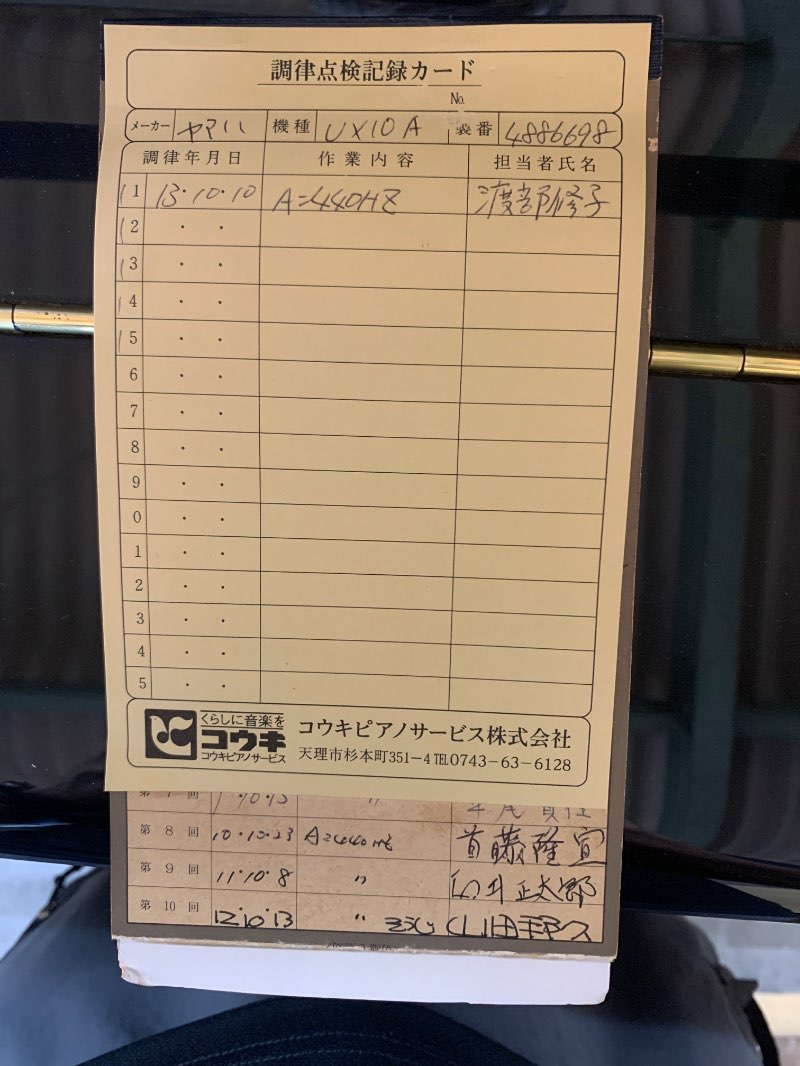 調律点検記録カード
No.
メーカー ヤマハ 機種 UX10A 装番 4886698
調律年月日 作業内容 担当者氏名
11 13・10・10 A=440HZ 渡部修子
12 ・ ・
13 ・ ・
14 ・ ・
15 ・ ・
6 ・ ・
7 ・ ・
8 ・ ・
9 ・ ・
0 ・ ・
1 ・ ・
2 ・ ・
3 ・ ・
4 ・ ・
5 ・ ・
くらしに音楽を
コウキ
コウキピアノサービス
コウキピアノサービス株式会社
天理市杉本町351-4 TEL0743-63-6128
第 7 回 10・15 〃
第 8 回 10・10・23 A=440HZ 首藤隆宣
第 9 回 11・10・8 〃 正太郎
第 10 回 12・10・13 〃